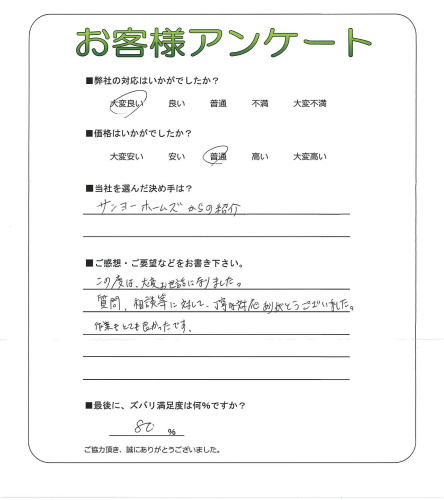 お客様アンケート
■弊社の対応はいかがでしたか？
大変良い 良い 普通 不満 大変不満
■価格はいかがでしたか？
大変安い 安い 普通 高い 大変高い
■当社を選んだ決め手は？
サンヨーホームズからの紹介
■ご感想・ご要望などをお書き下さい。
この度は、大変お世話になりました。
質問、相談等に対して、丁寧な対応ありがとうございました。
作業もとても良かったです。
■最後に、ズバリ満足度は何％ですか？
80 ％
ご協力頂き、誠にありがとうございました。